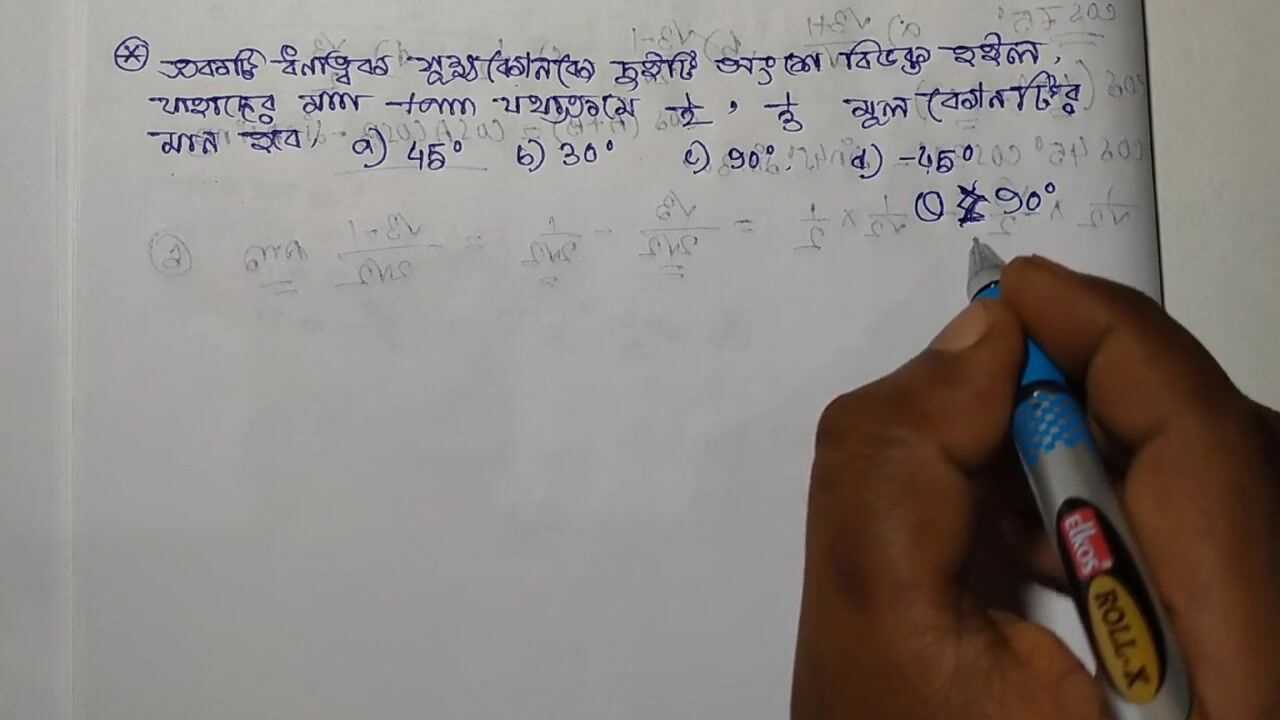 একটি ধনাত্মক সূক্ষ্মকোণকে দুইটি অংশে বিভক্ত হইল,
যাহাদের মান যথাক্রমে 1/2, 1/3 মূল কোণটির
মান হবে, a) 45° b) 30° c) 90° d) -45°
90°
elkos
ROLL-X